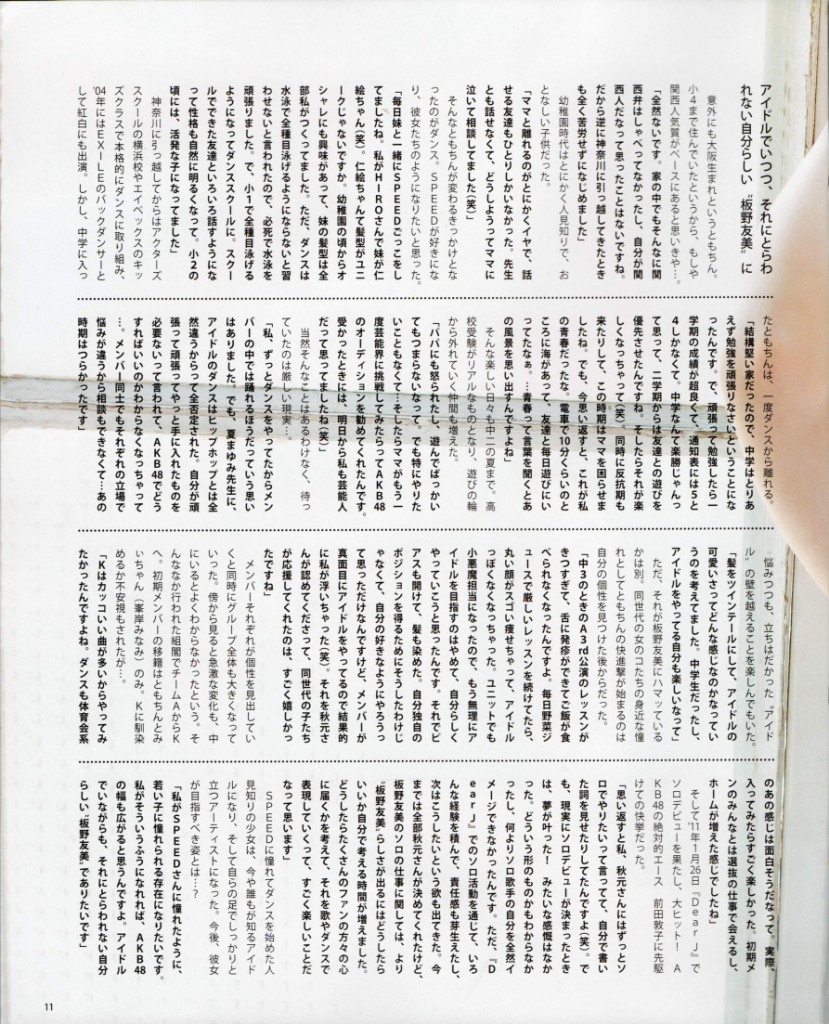 アイドルでいつつ、それにとらわ
れない自分らしい“板野友美”に
意外にも大阪生まれというともちん。
小4まで住んでいたというから、もしや
関西人気質がベースにあると思いきや…。
「全然ないです。家の中でもそんなに関
西弁はしゃべってなかったし、自分が関
西人だなって思ったことはないですね。
だから逆に神奈川に引っ越してきたとき
も全く苦労せずになじめました」
幼稚園時代はとにかく人見知りで、お
となしい子供だった。
「ママと離れるのがとにかくイヤで、話
せる友達もひとりしかいなかった。先生
とも話せなくて、どうしようってママに
泣いて相談してました（笑）」
そんなともちんが変わるきっかけとな
ったのがダンス。SPEEDが好きにな
り、彼女たちのようになりたいと思った。
「毎日妹と一緒にSPEEDごっこをし
てましたね。私がHIROさんで妹が仁
絵ちゃん（笑）。仁絵ちゃんて髪型がユニ
ークじゃないですか。幼稚園の頃からオ
シャレにも興味があって、妹の髪型は全
部私がつくってました。ただ、ダンスは
水泳で全種目泳げるようにならないと習
わせないと言われたので、必死で水泳を
頑張りました。で、小1で全種目泳げる
ようになってダンススクールに。スクー
ルでできた友達といろいろ話すようにな
って性格も自然に明るくなって。小2の
頃には、活発な子になってました」
神奈川に引っ越してからはアクターズ
スクールの横浜校やエイベックスのキッ
ズクラスで本格的にダンスに取り組み、
'04年にはEXILEのバックダンサーと
して紅白にも出演。しかし、中学に入っ
たともちんは、一度ダンスから離れる。
「結構堅い家だったので、中学はとりあ
えず勉強を頑張りなさいということにな
ったんです。で、頑張って勉強したら一
学期の成績が超良くて。通知表には5と
4しかなくて。中学なんて楽勝じゃんっ
て思って、二学期からは友達との遊びを
優先させたんですね。そしたらそれが楽
しくなっちゃって（笑）。同時に反抗期も
来たりして、この時期はママを困らせま
したね。でも、今思い返すと、これが私
の青春だったな。電車で10分くらいのと
ころに海があって、友達と毎日遊びにい
ってたなぁ。…青春って言葉を聞くとあ
の風景を思い出すんですよね」
そんな楽しい日々も中二の夏まで。高
校受験がリアルなものとなり、遊びの輪
から外れていく仲間も増えた。
「パパにも怒られたし、遊んでばっかい
てもつまらないなって。でも特にやりた
いこともなくて…そしたらママがもう一
度芸能界に挑戦してみたらってAKB48
のオーディションを勧めてくれたんです。
受かったときには、明日から私も芸能人
だって思ってましたね（笑）」
当然そんなことはあるわけなく、待っ
ていたのは厳しい現実…。
「私、ずっとダンスをやってたからメン
バーの中では踊れるほうだっていう思い
はありました。でも、夏まゆみ先生に、
アイドルのダンスはヒップホップとは全
然違うからって全否定された。自分が頑
張って頑張ってやっと手に入れたものを
必要ないって言われて、AKB48でどう
すればいいのかわからなくなっちゃって
…。メンバー同士でもそれぞれの立場で
悩みが違うから相談もできなくて…あの
時期はつらかったです」
悩みつつも、立ちはだかった“アイド
ル”の壁を越えることを楽しんでもいた。
「髪をツインテールにして、アイドルの
可愛いさってどんな感じなのかなってい
うのを考えてました。中学生だったし、
アイドルをやってる自分も楽しいなって」
ただ、それが板野友美にハマッている
かは別。同世代の女のコたちの身近な憧
れとしてともちんの快進撃が始まるのは
自分の個性を見つけた後からだった。
「中3のときのA3rd公演のレッスンが
きつすぎて、舌に発疹ができてご飯が食
べられなくなったんですよ。毎日野菜ジ
ュースで厳しいレッスンを続けてたら、
丸い顔がスゴい痩せちゃって、アイドル
っぽくなくなっちゃった。ユニットでも
小悪魔担当になったので、もう無理にア
イドルを目指すのはやめて、自分らしく
やっていこうと思ったんです。それでピ
アスも開けて、髪も染めた。自分独自の
ポジションを得るためにそうしたわけじ
ゃなくて、自分の好きなようにやろうっ
て思っただけなんですけど、メンバーが
真面目にアイドルをやってるので結果的
に私が浮いちゃった（笑）。それを秋元さ
んが認めてくださって、同世代の子たち
が応援してくれたのは、すごく嬉しかっ
たですね」
メンバーそれぞれが個性を見出してい
くと同時にグループ全体も大きくなって
いった。傍から見ると急激な変化も、中
にいるとよくわからなかったという。そ
んななか行われた組閣でチームAからK
へ。初期メンバーの移籍はともちんとみ
ぃちゃん（峯岸みなみ）のみ。Kに馴染
めるか不安視もされたが…。
「Kはカッコいい曲が多いからやってみ
たかったんですよね。ダンスも体育会系
のあの感じは面白そうだなって。実際、
入ってみたらすごく楽しかった。初期メ
ンのみんなとは選抜の仕事で会えるし、
ホームが増えた感じでしたね」
そして'11年1月26日『DearJ』で
ソロデビューを果たし、大ヒット！ A
KB48の絶対的エース 前田敦子に先駆
けての快挙だった。
「思い返すと私、秋元さんにはずっとソ
ロでやりたいって言ってて、自分で書い
た詞を見せたりしてたんですよ（笑）。で
も、現実にソロデビューが決まったとき
は、夢が叶った！ みたいな感慨はなか
った。どういう形のものかもわからなか
ったし、何よりソロ歌手の自分を全然イ
メージできなかったんです。ただ、『D
earJ』でのソロ活動を通じて、いろ
んな経験を積んで、責任感も芽生えたし、
次はこうしたいという欲も出てきた。今
までは全部秋元さんが決めてくれたけど、
板野友美のソロの仕事に関しては、より
“板野友美”らしさが出るにはどうしたら
いいか自分で考える時間が増えました。
どうしたらたくさんのファンの方々の心
に届くかを考えて、それを歌やダンスで
表現していくって、すごく楽しいことだ
なって思います」
SPEEDに憧れてダンスを始めた人
見知りの少女は、今や誰もが知るアイド
ルになり、そして自らの足でしっかりと
立つアーティストになった。今後、彼女
が目指すべき姿とは…？
「私がSPEEDさんに憧れたように、
若い子に憧れられる存在になりたいです。
私がそういうふうになれれば、AKB48
の幅も広がると思うんですよ。アイドル
でいながらも、それにとらわれない自分
らしい“板野友美”でありたいです」
11